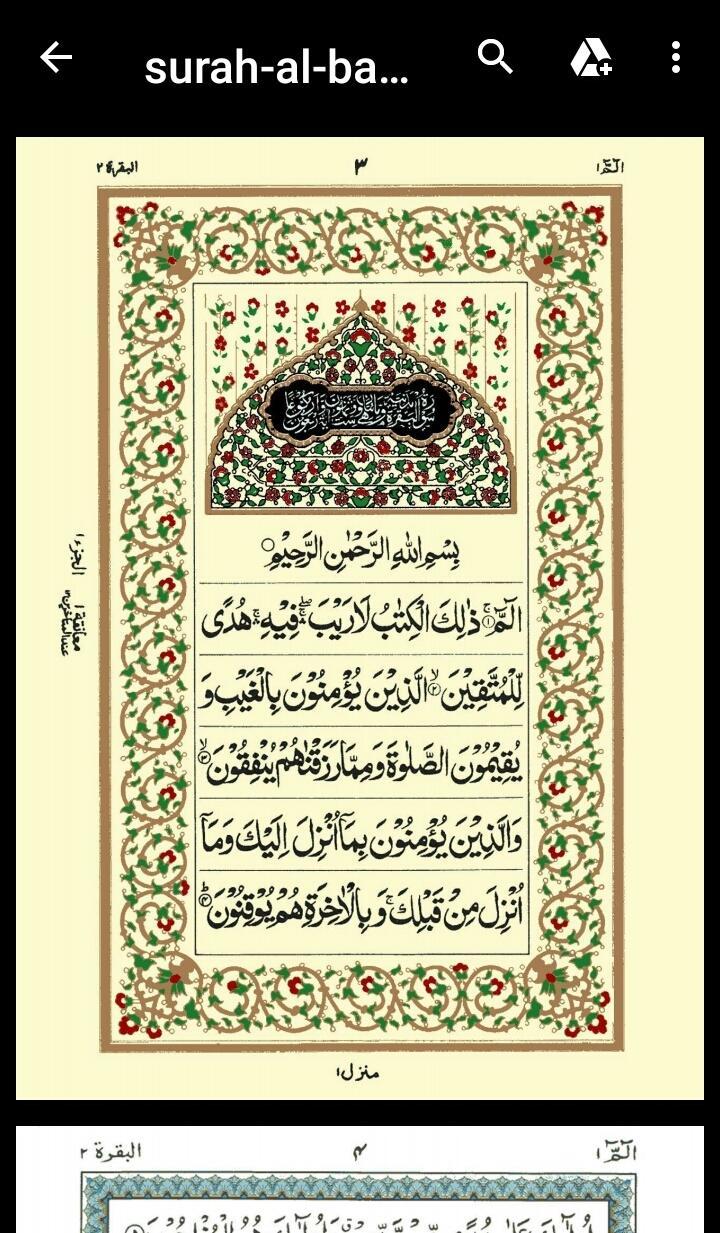 surah-al-ba...
البقرة ٢
٣
الٓمّٓ ١
بِسْمِ اللّٰهِ الرَّحْمٰنِ الرَّحِيْمِ
الٓمّٓ ۚ﴿۱﴾ ذٰلِكَ الْكِتٰبُ لَا رَيْبَ ۛۖۚ فِيْهِ ۛۚ هُدًى
لِّلْمُتَّقِيْنَ ۙ﴿۲﴾ الَّذِيْنَ يُؤْمِنُوْنَ بِالْغَيْبِ وَ
يُقِيْمُوْنَ الصَّلٰوةَ وَمِمَّا رَزَقْنٰهُمْ يُنْفِقُوْنَ ۙ﴿۳﴾
وَالَّذِيْنَ يُؤْمِنُوْنَ بِمَاۤ اُنْزِلَ اِلَيْكَ وَمَاۤ
اُنْزِلَ مِنْ قَبْلِكَ ۚ وَ بِالْاٰخِرَةِ هُمْ يُوْقِنُوْنَ ؕ﴿۴﴾
الجزء ١
معانقة ١
منزل ١
البقرة ٢
۴
الٓمّٓ ١